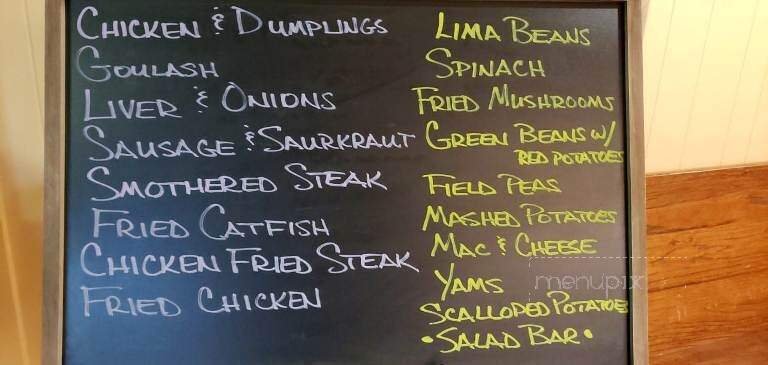 CHICKEN & DUMPLINGS
GOULASH
LIVER & ONIONS
SAUSAGE & SAURKRAUT
SMOTHERED STEAK
FRIED CATFISH
CHICKEN FRIED STEAK
FRIED CHICKEN
LIMA BEANS
SPINACH
FRIED MUSHROOMS
GREEN BEANS W/
RED POTATOES
FIELD PEAS
MASHED POTATOES
MAC & CHEESE
YAMS
SCALLOPED POTATOES
•SALAD BAR•
menupix